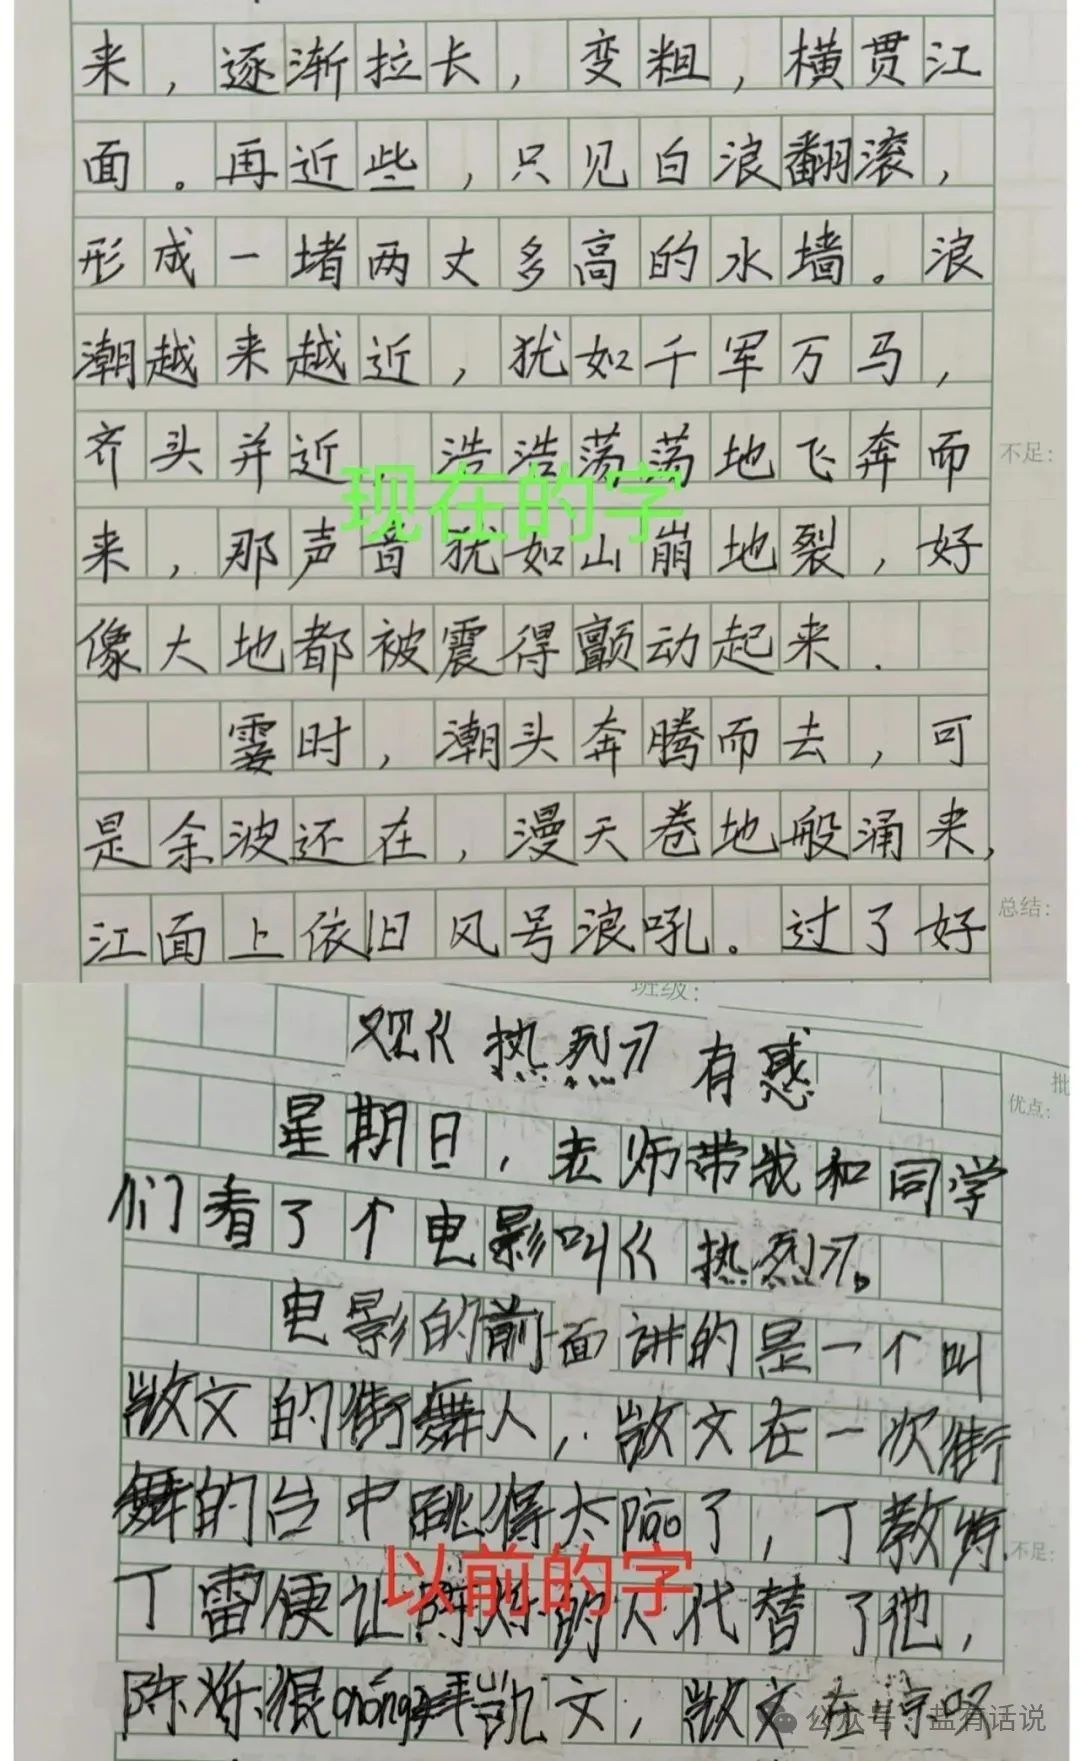 来，逐渐拉长，变粗，横贯江
面。再近些，只见白浪翻滚，
形成一堵两丈多高的水墙。浪
潮越来越近，犹如千军万马，
齐头并近，浩浩荡荡地飞奔而
不足：
现在的字
来，那声音犹如山崩地裂，好
像大地都被震得颤动起来．
霎时，潮头奔腾而去，可
是余波还在，漫天卷地般涌来，
江面上依旧风号浪吼。过了好
总结：
班级：
观《热烈》有感
批
优点：
星期日，老师带我和同学
们看了个电影叫《热烈》。
电影的前面讲的是一个叫
凯文的街舞人，凯文在一次街
舞的台中跳得太险了，丁教练
不足：
以前的字
丁雷便让陈烁的人代替了他，
陈烁很chóng拜凯文，凯文在
公众号·盐有话说